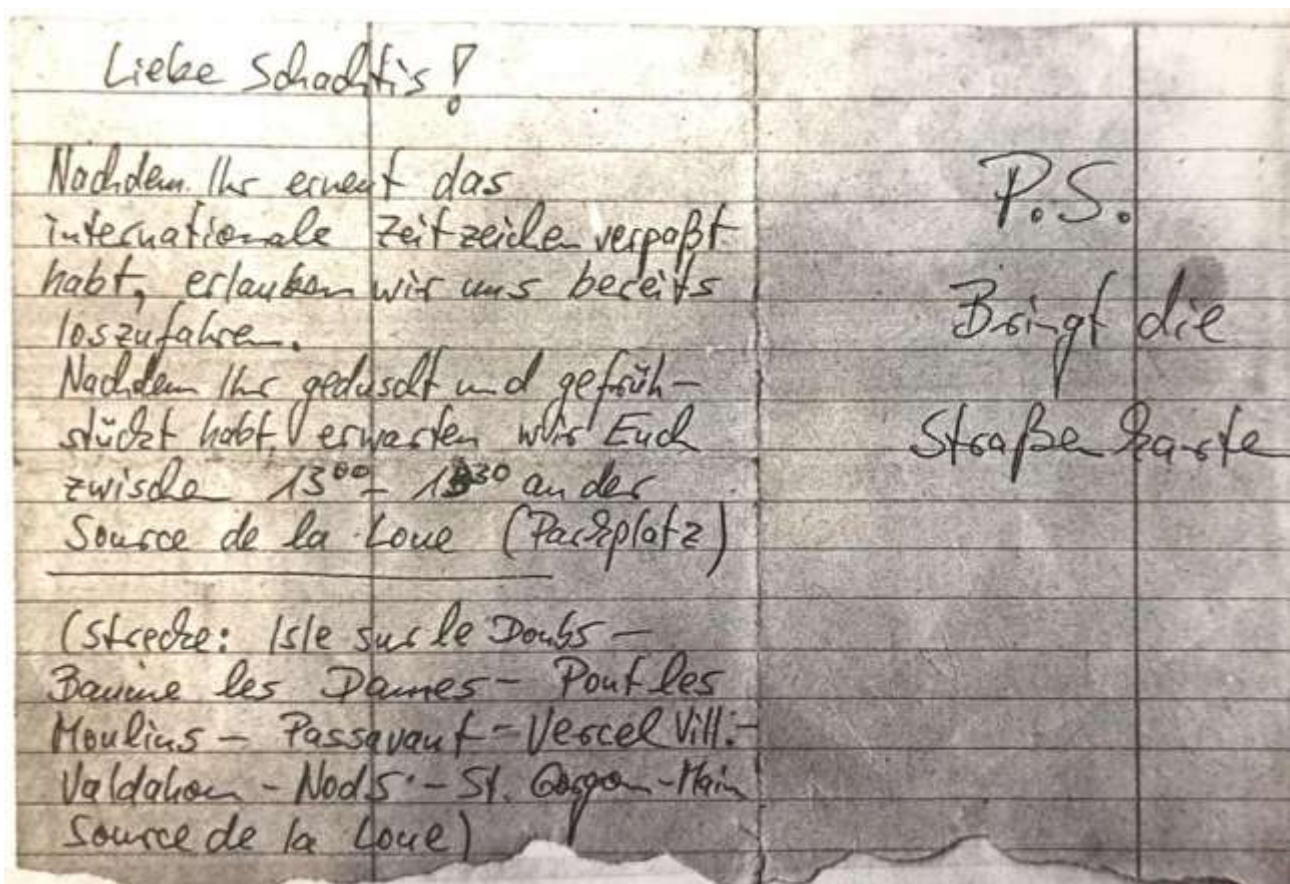 Liebe Schachtis!
Nachdem Ihr erneut das
internationale Zeitzeichen verpaßt
habt, erlauben wir uns bereits
loszufahren.
Nachdem Ihr geduscht und gefrüh-
stückt habt, erwarten wir Euch
zwischen 13⁰⁰ - 13³⁰ an der
Source de la Loue (Parkplatz)
(Strecke: Isle sur le Doubs -
Baume les Dames - Pont les
Moulins - Passavant - Vercel Vill. -
Valdahon - Nods - St. Gorgon-Main
Source de la Loue)
P.S.
Bringt die
Straßenkarte